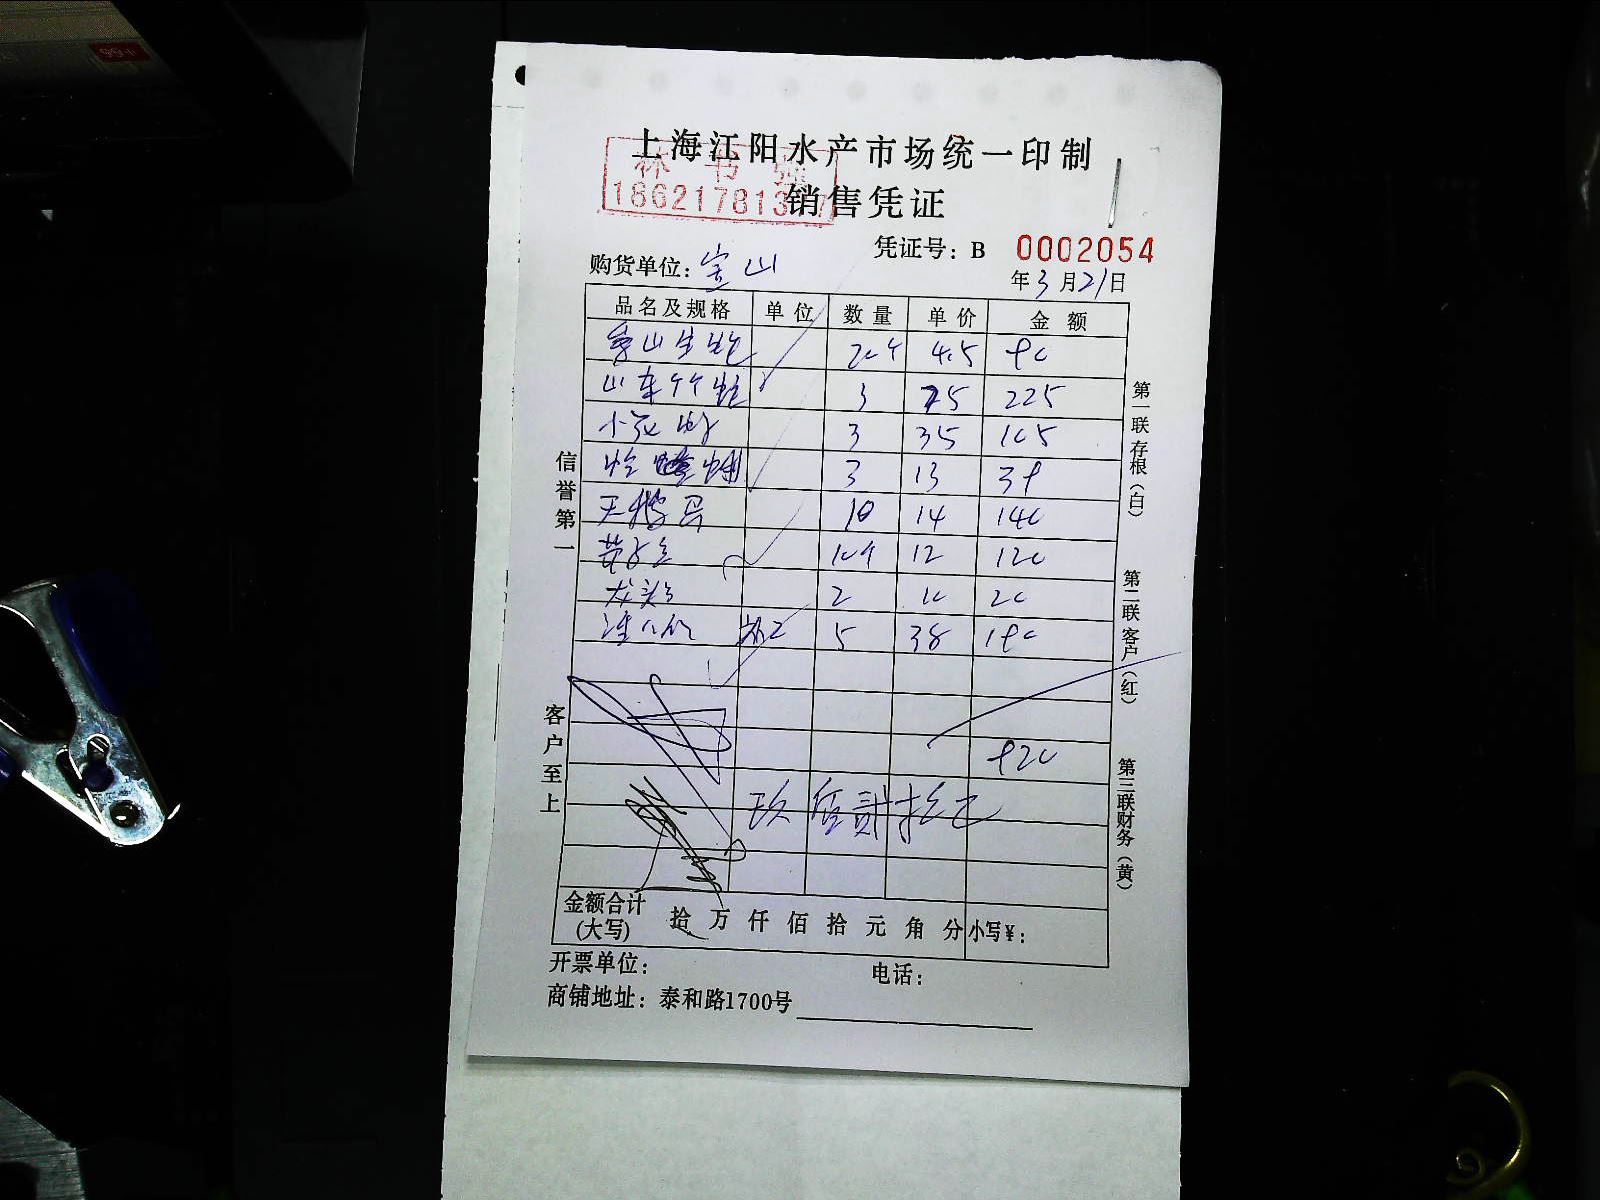 上海江阳水产市场统一印制
林书强
186217813
销售凭证
凭证号：B 0002054
购货单位：宝山
年3月21日
品名及规格 单位 数量 单价 金额
象山生蚝 20个 4.5 90
山东竹蛏 3 75 225
小 3 35 105
蛤 3 13 39
天鹅 10 14 140
黄 10个 12 120
龙头 2 10 20
加工 5 38 190
920
玖佰贰拾元
金额合计(大写) 拾 万 仟 佰 拾 元 角 分 小写¥：
开票单位： 电话：
商铺地址：泰和路1700号
信誉第一
客户至上
第一联存根(白)
第二联客户(红)
第三联财务(黄)